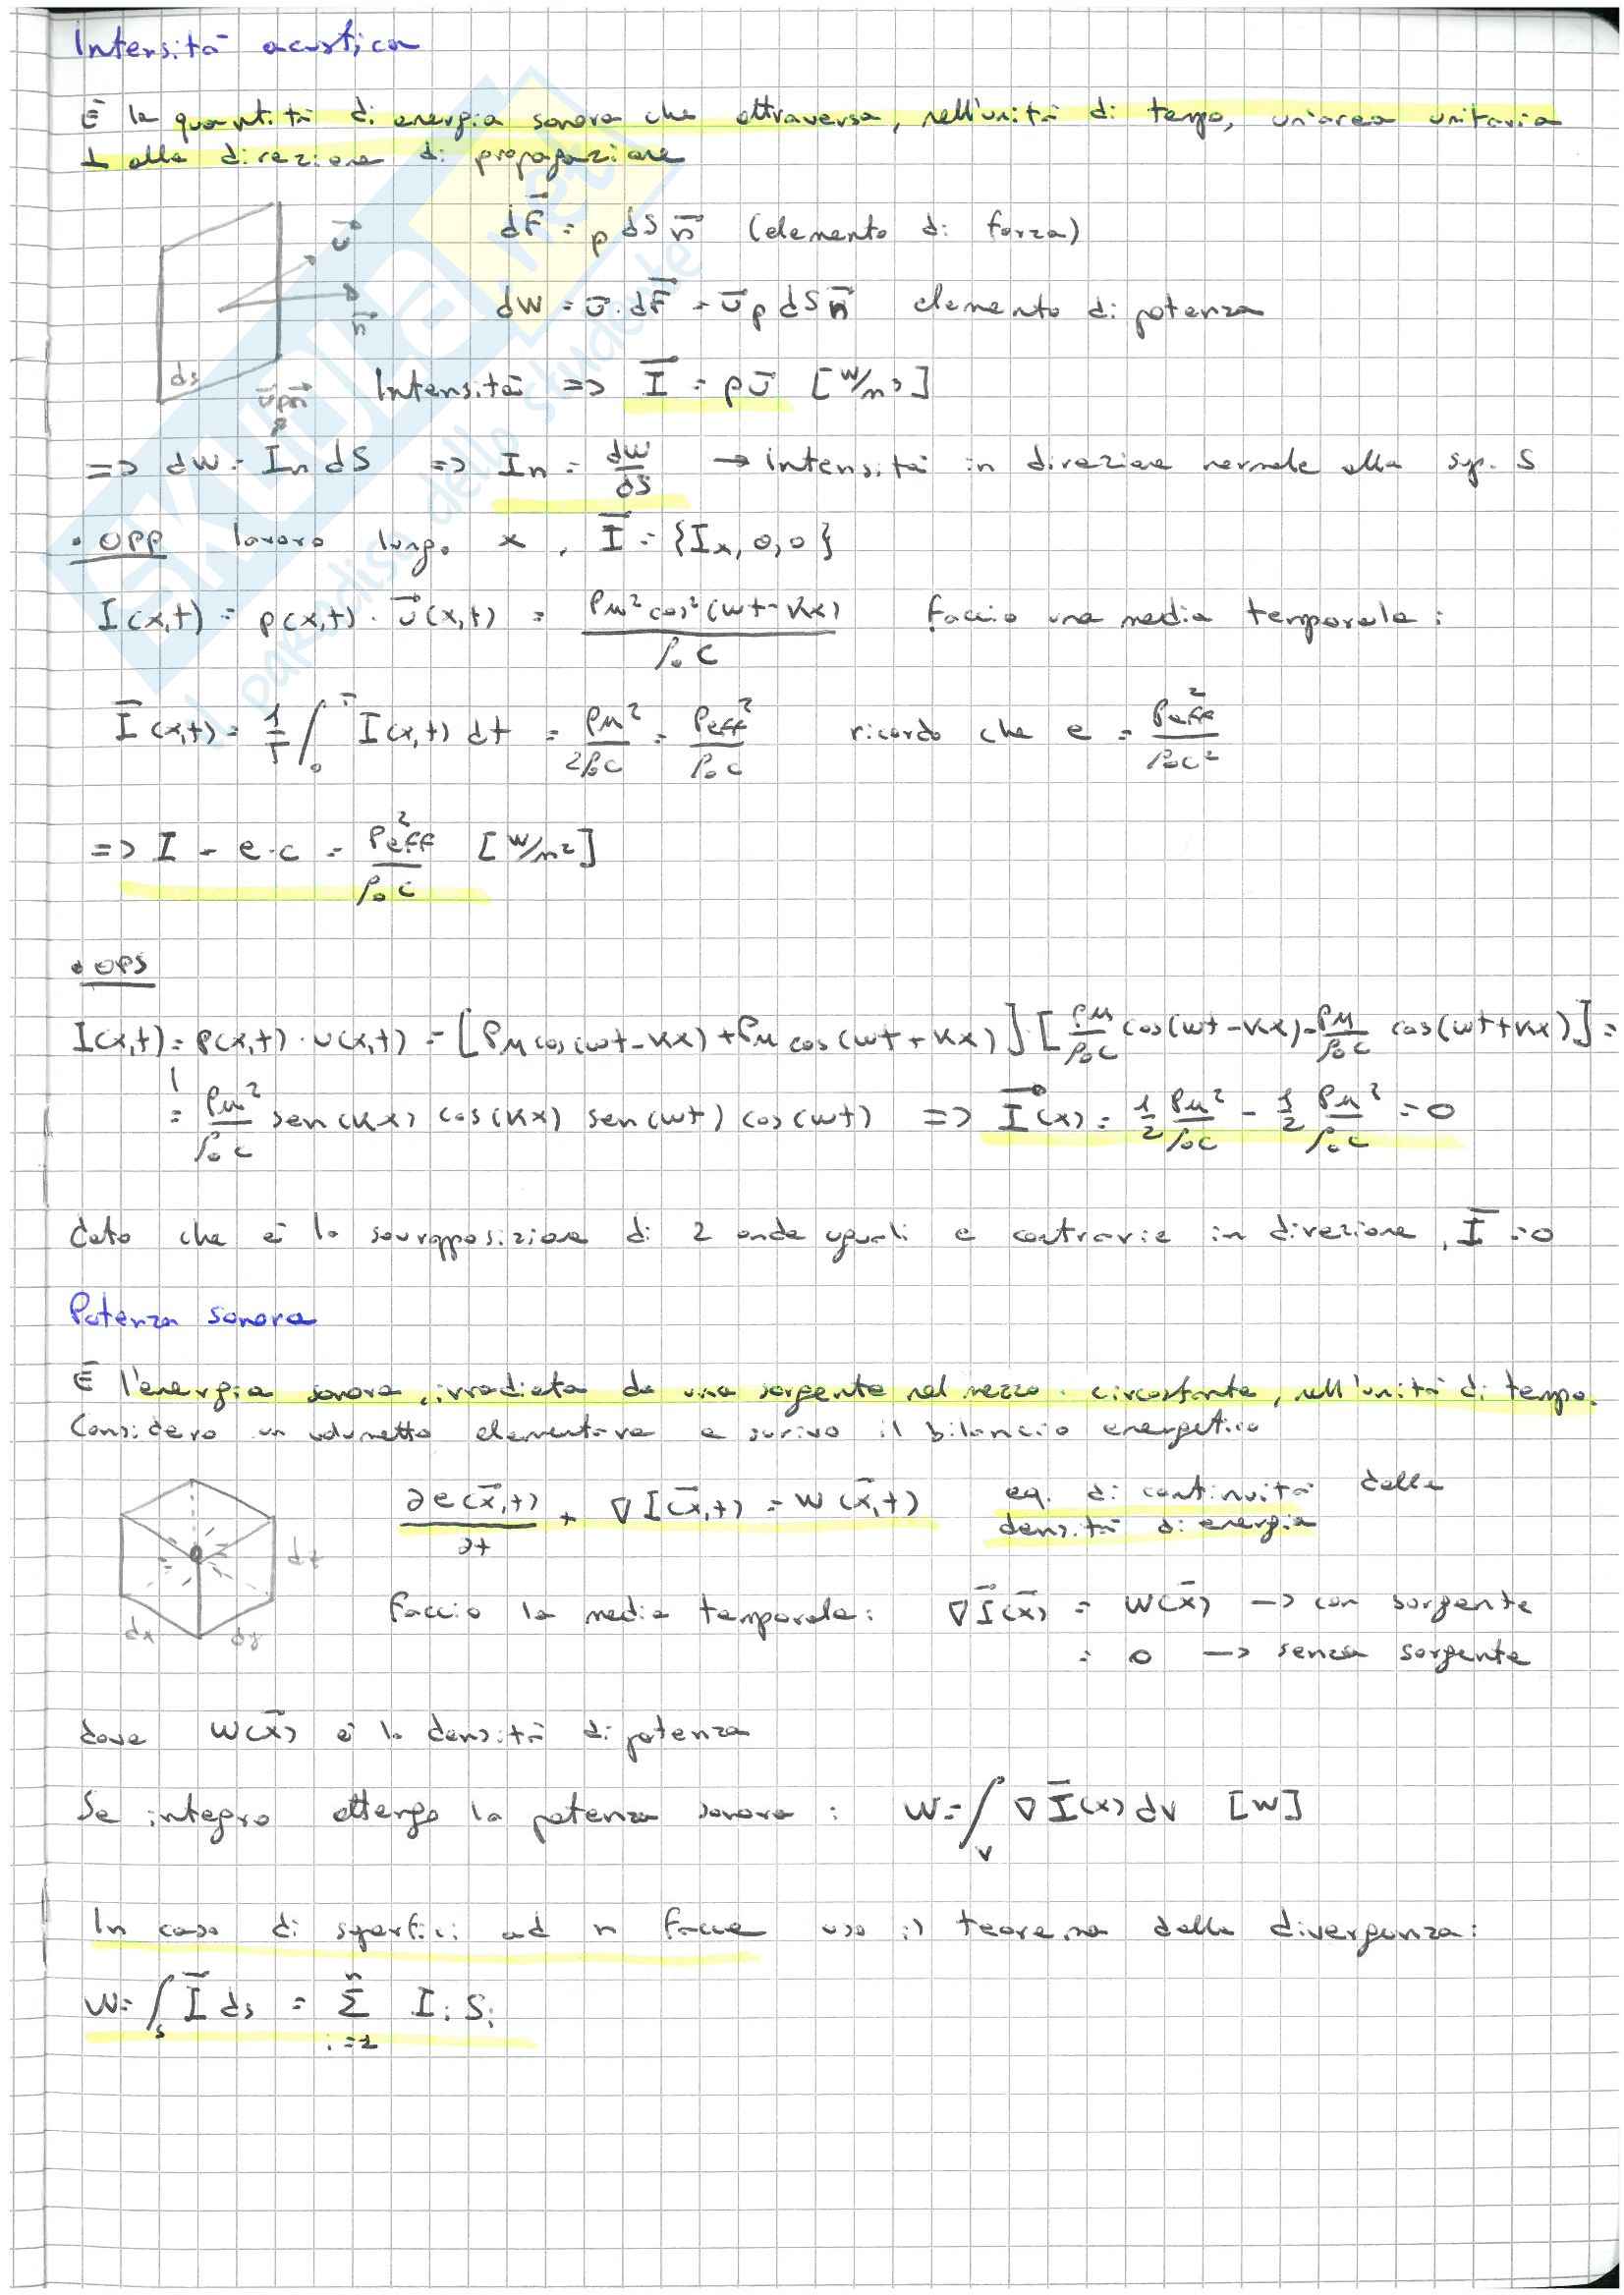 Intensità acustica
È la quantità di energia sonora che attraversa, nell'unità di tempo, un'area unitaria
⊥ alla direzione di propagazione
dF⃗ = p dS n⃗ (elemento di forza)
u⃗
n⃗
dW = ū · dF⃗ = ū p dS n⃗ elemento di potenza
ds
ū p n⃗
Intensità => Ī = p ū [W/m²]
=> dW = In dS => In = dW/dS → intensità in direzione normale alla sup. S
• OPP lavoro lungo x, Ī = {Ix, 0, 0}
I(x,t) = p(x,t) · u⃗(x,t) = PM² cos²(ωt-Kx) / ρ₀c faccio una media temporale:
Ī(x,t) = 1/T ∫₀ᵀ I(x,t) dt = PM²/2ρ₀c = Peff²/ρ₀c ricordo che e = Peff²/ρ₀c²
=> I = e·c = Peff²/ρ₀c [W/m²]
• OPS
I(x,t) = p(x,t) · u(x,t) = [PM cos(ωt-Kx) + PM cos(ωt+Kx)] [PM/ρ₀c cos(ωt-Kx) - PM/ρ₀c cos(ωt+Kx)] =
= PM²/ρ₀c sen(Kx) cos(Kx) sen(ωt) cos(ωt) => Ī(x) = 1/2 PM²/ρ₀c - 1/2 PM²/ρ₀c = 0
dato che è la sovrapposizione di 2 onde uguali e contrarie in direzione, Ī = 0
Potenza sonora
È l'energia sonora, irradiata da una sorgente nel mezzo circostante, nell'unità di tempo.
Considero un volumetto elementare e scrivo il bilancio energetico
∂e(x⃗,t)/∂t + ∇I(x⃗,t) = W(x⃗,t) eq. di continuità della
densità di energia
dz
dx dy
faccio la media temporale: ∇I⃗(x̄) = W(x̄) → con sorgente
= 0 → senza sorgente
dove W(x⃗) è la densità di potenza
Se integro ottengo la potenza sonora: W = ∫ᵥ ∇Ī(x) dV [W]
In caso di superfici ad n facce uso il teorema della divergenza:
W = ∫ₛ Ī ds = Σⁿᵢ₌₁ Iᵢ Sᵢ
SKUOLA.net
il paradiso dello studente